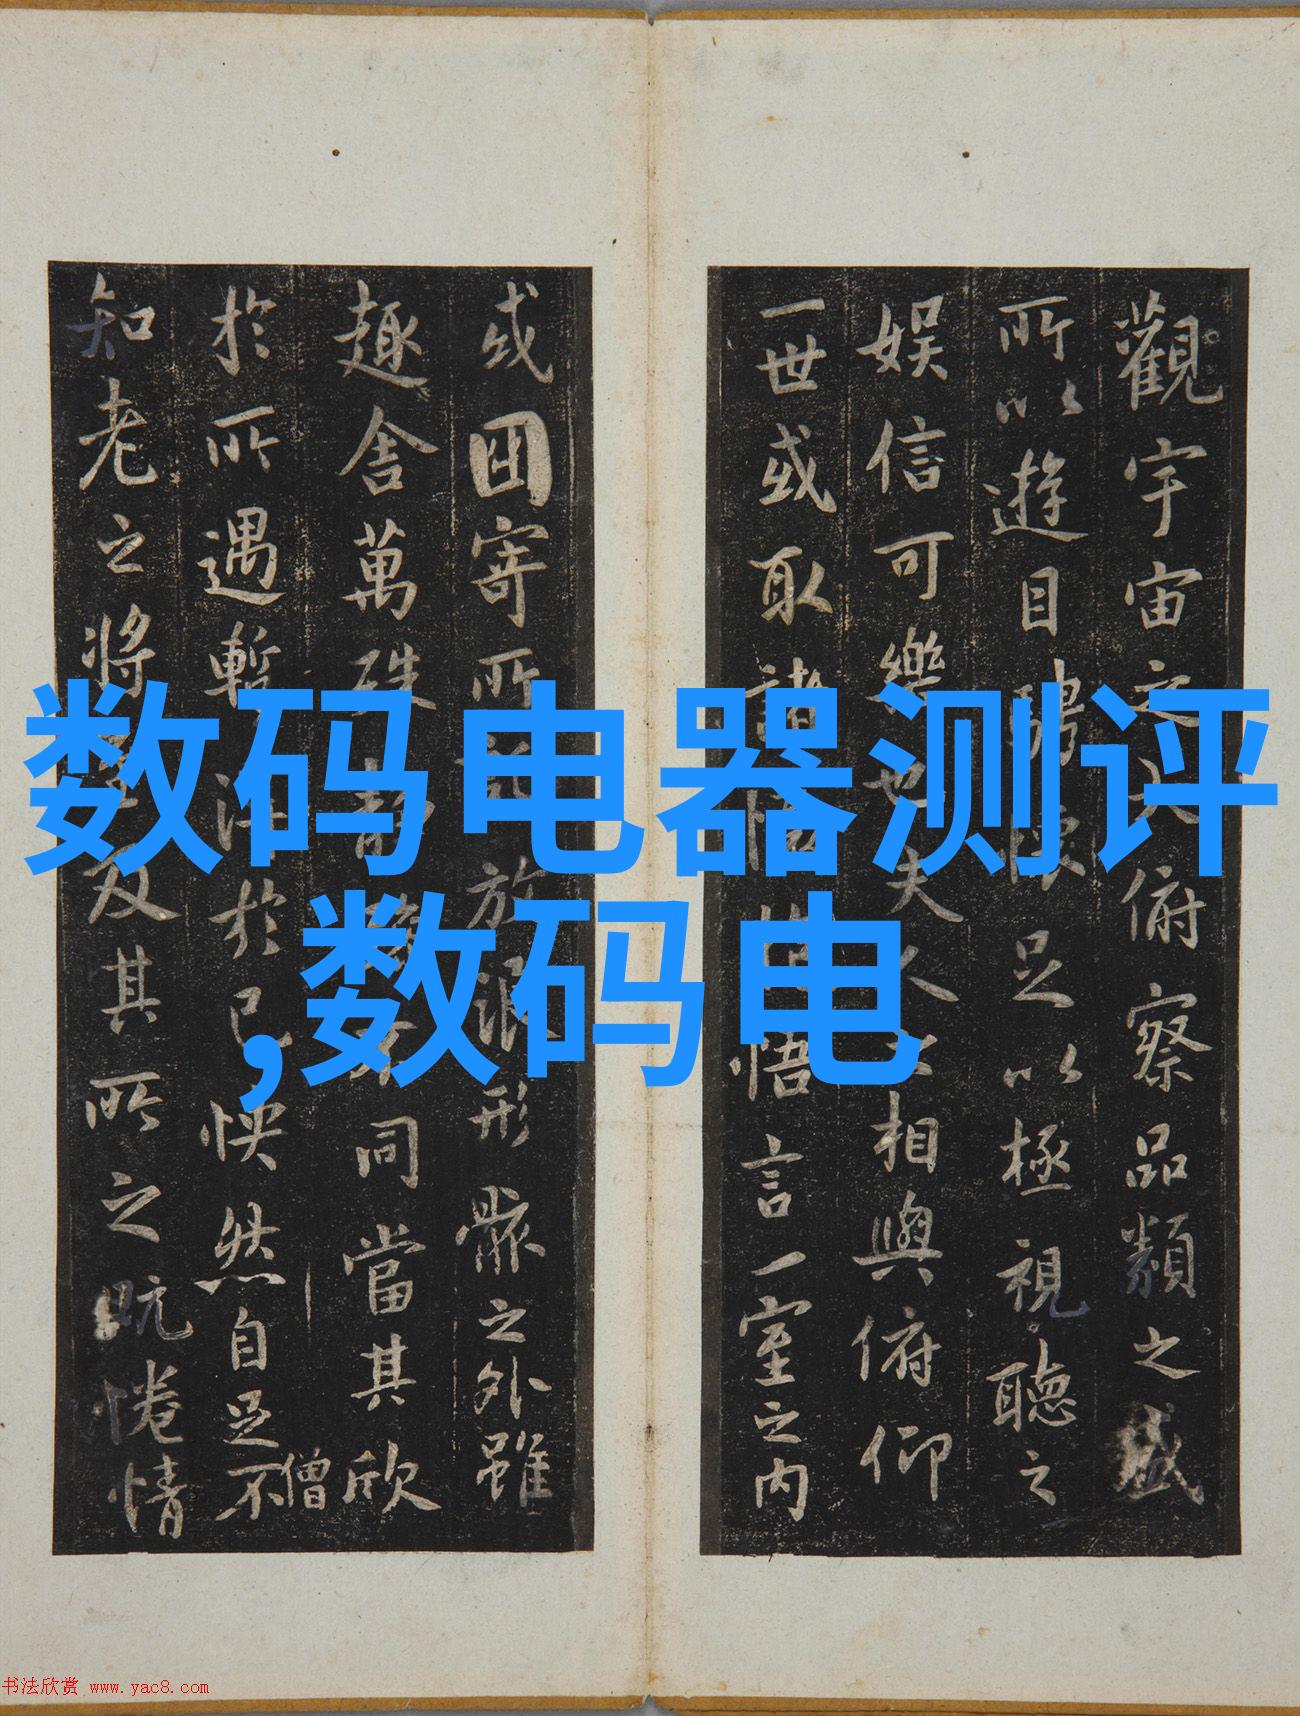 数码电器测评
,数码电
觀宇宙之大俯察品類之盛
所以遊目騁懷足以極視聽之
娛信可樂也夫人之相與俯仰
一世或取諸懷抱悟言一室之內
或因寄所託放浪形骸之外雖
趣舍萬殊靜躁不同當其欣
僧
於所遇暫得於己怏然自足不
知老之將至及其所之既惓情
书法欣赏 www.yac8.com